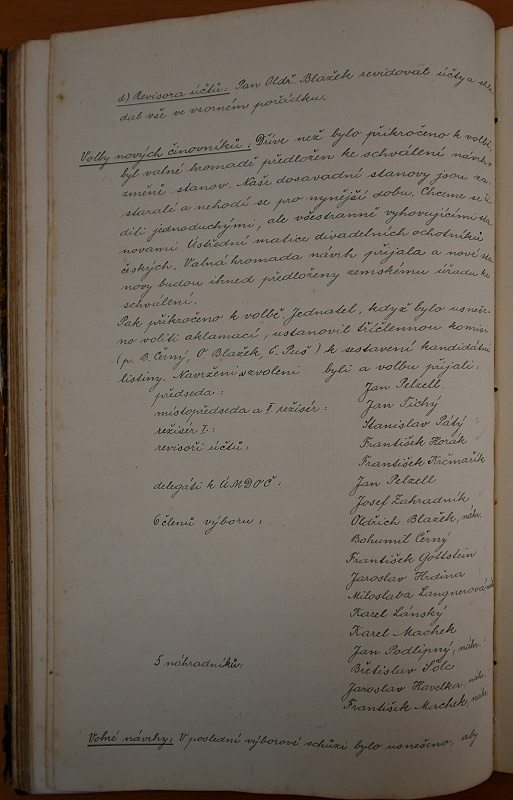 d) Revisora účtů: Pan Oldř. Blažek revidoval účty a shle-
dal vše ve vzorném pořádku.
Volby nových činovníků: Dříve než bylo přikročeno k volbě,
byl valné hromadě předložen ke schválení návrh
změně stanov. Naše dosavadní stanovy jsou za-
staralé a nehodí se pro nynější dobu. Chceme se ří-
diti jednoduchými, ale všestranně vyhovujícími sta-
novami Ústřední matice divadelních ochotníků
českých. Valná hromada návrh přijala a nové sta-
novy budou ihned předloženy zemskému úřadu ke
schválení.
Pak přikročeno k volbě. Jednatel, když bylo usneše-
no voliti aklamací, ustanovil tříčlennou komisi
(p. B. Černý, O Blažek, E. Puš) k sestavení kandidátní
listiny. Navrženi a zvoleni byli a volbu přijali:
předseda: Jan Pelzell
místopředseda a II režisér: Jan Tichý
režisér I.: Stanislav Pátý
revisoři účtů: František Horák
František Krčmařík
delegáti k ÚMDOČ: Jan Pelzell
Josef Zahradník
6 členů výboru: Oldřich Blažek, náhr.
Bohumil Černý
František Gottstein
Jaroslav Hrdina
Miloslava Langnerová
Karel Lánský
Karel Machek
Jan Podlipný, náhr.
5 náhradníků: Břetislav Šolc
Jaroslav Havelka, náhr.
František Machek, náhr.
Volné návrhy: V poslední výborové schůzi bylo usnešeno, aby